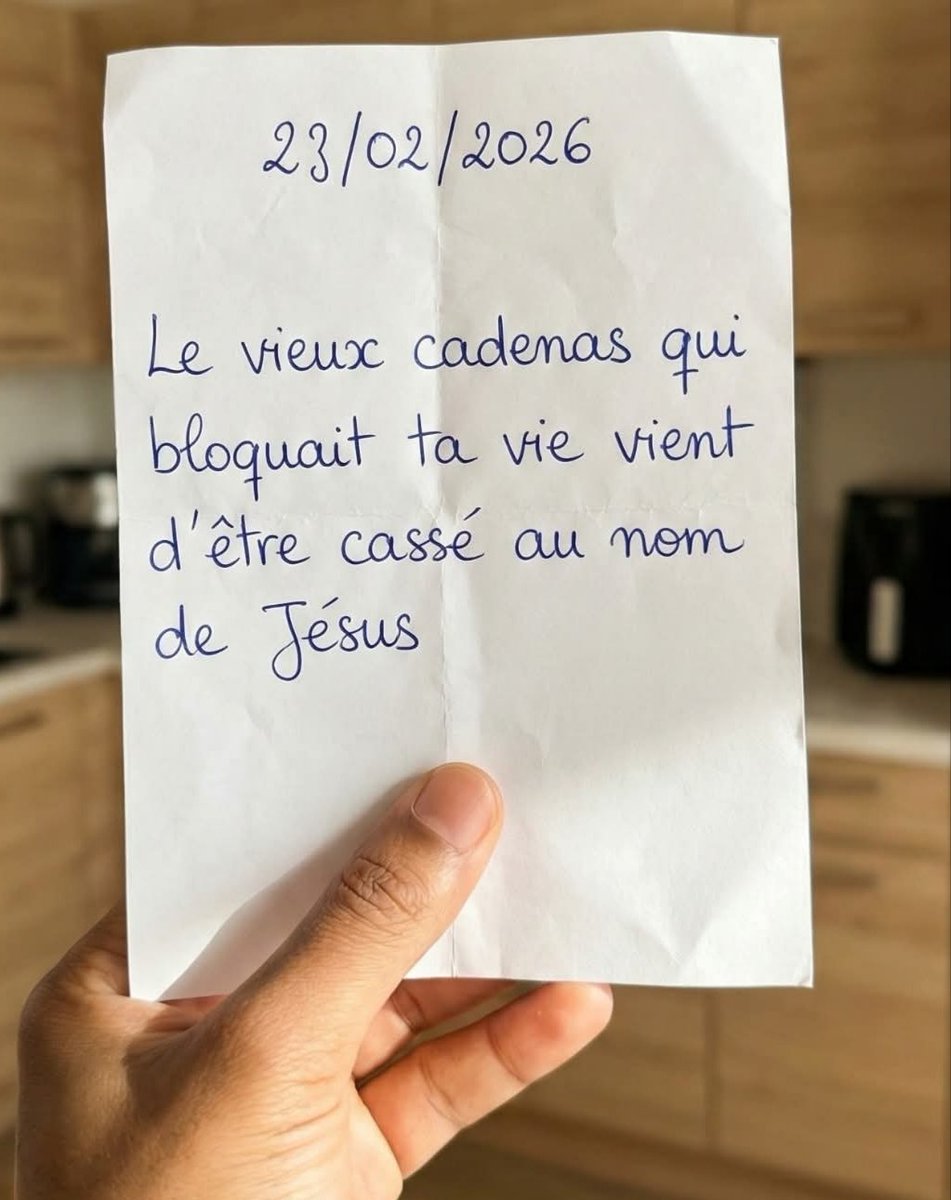 23/02/2026
Le vieux cadenas qui
bloquait ta vie vient
d'être cassé au nom
de Jésus